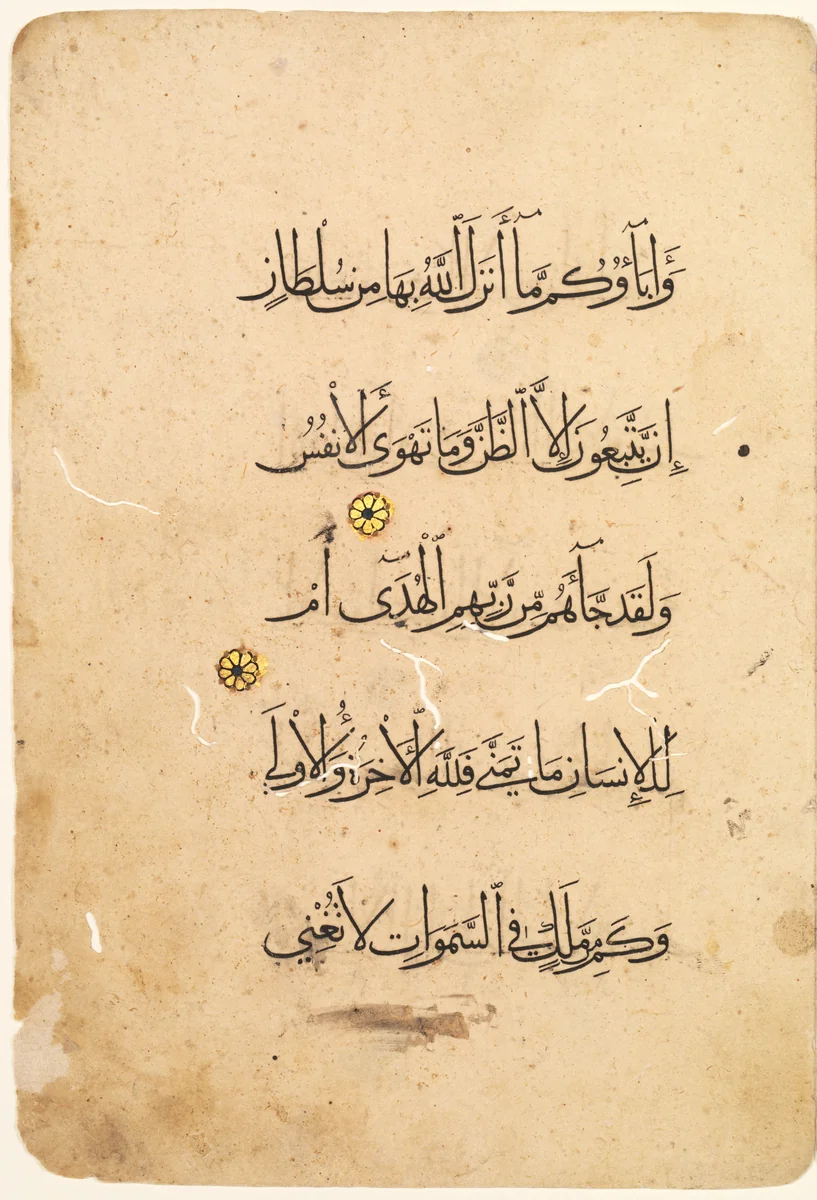 وَأَبَآؤُكُم مَّآ أَنزَلَ ٱللَّهُ بِهَا مِن سُلْطَانٍ
إِن يَّتَّبِعُونَ إِلَّا ٱلظَّنَّ وَمَا تَهْوَى ٱلْأَنفُسُ
وَلَقَد جَّآءَهُم مِّن رَّبِّهِمِ ٱلْهُدَىٓ أَمْ
لِلْإِنسَانِ مَا تَمَنَّى فَلِلَّهِ ٱلْأَخِرَةُ وَٱلْأُولَى
وَكَم مِّن مَّلَكٍ فِي ٱلسَّمَوَاتِ لَا تُغْنِي